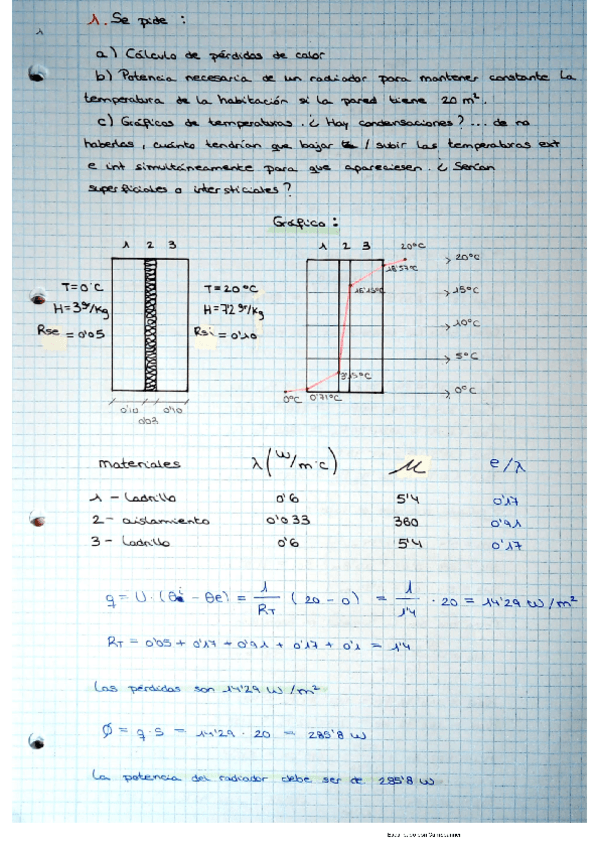 1. Se pide :
a) Cálculo de pérdidas de calor
b) Potencia necesaria de un radiador para mantener constante la
temperatura de la habitación si la pared tiene 20 m².
c) Gráficos de temperaturas. ¿ Hay condensaciones? ... de no
haberlas, cuánto tendrían que bajar / subir las temperaturas ext
e int simultáneamente para que apareciesen. ¿ Serían
superficiales o intersticiales?
Gráfico :
1 2 3
1 2 3 20°C
T=0°C
H=3gr/Kg
Rse = 0'05
T=20°C
H=7'2gr/Kg
Rsi = 0'10
0'10 0'10
0'03
18'57°C
16'15°C
0°C 0'71°C
20°C
15°C
10°C
5°C
0°C
materiales λ (W/m·c) μ e/λ
1 - Ladrillo 0'6 5'4 0'17
2 - aislamiento 0'033 360 0'91
3 - Ladrillo 0'6 5'4 0'17
q = U · (θi - θe) = 1/RT (20 - 0) = 1/1'4 · 20 = 14'29 W/m²
RT = 0'05 + 0'17 + 0'91 + 0'17 + 0'1 = 1'4
Las pérdidas son 14'29 W/m²
Ø = q·S = 14'29 · 20 = 285'8 W
La potencia del radiador debe ser de 285'8 W